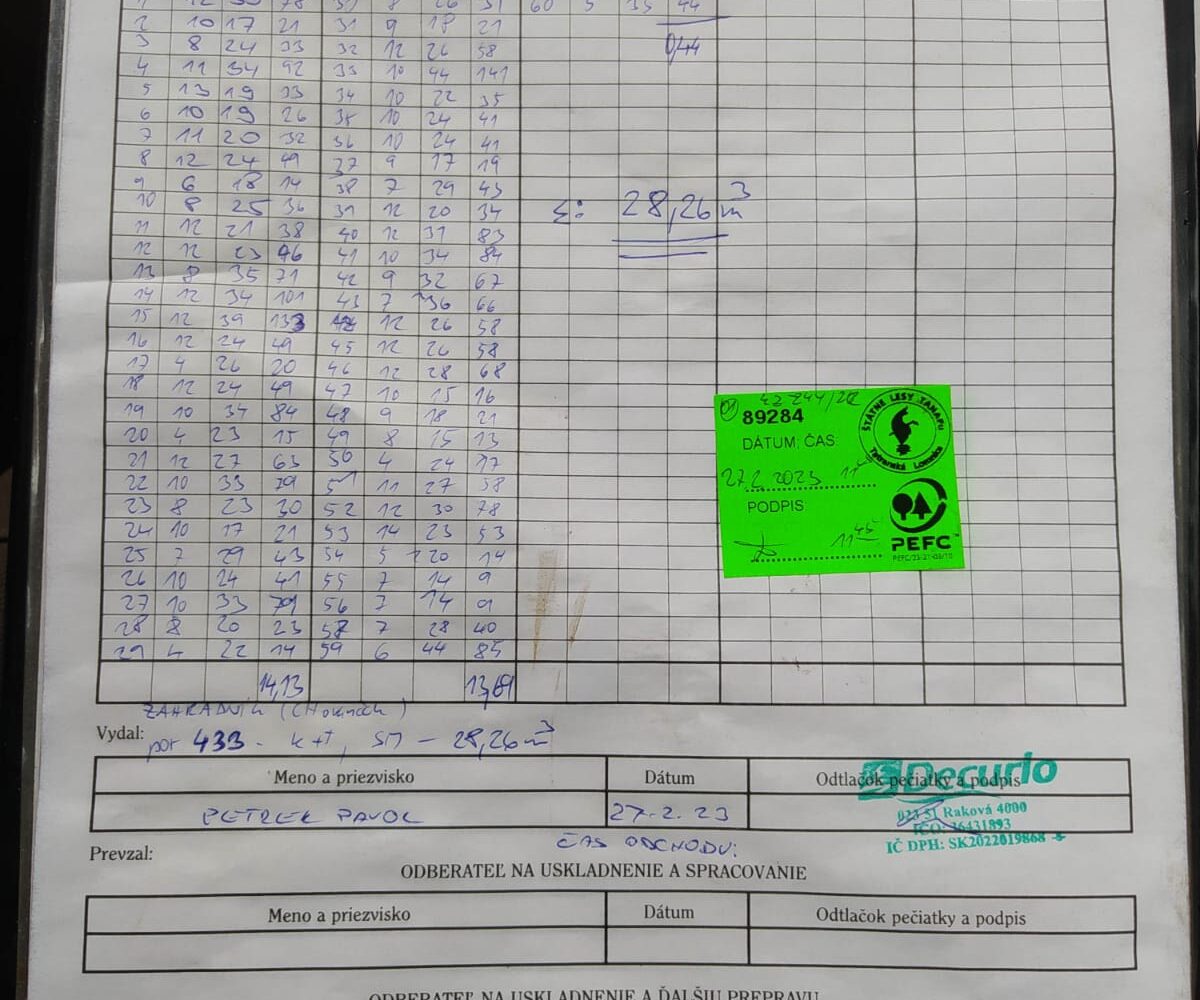 2 10 17 21 31 9 18 21
3 8 24 33 32 12 26 58 0,44
4 11 34 92 33 10 44 141
5 13 19 33 34 10 22 35
6 10 19 26 35 10 24 41
7 11 20 32 36 10 24 41
8 12 24 49 37 9 17 19
9 6 18 14 38 7 29 43
10 8 25 36 39 12 20 34 Σ: 28,26 m³
11 12 21 38 40 12 31 83
12 12 23 46 41 10 34 84
13 8 35 71 42 9 32 67
14 12 34 101 43 7 36 66
15 12 39 133 12 26 58
16 12 24 49 45 12 26 58
17 4 26 20 46 12 28 68
18 12 24 49 47 10 15 16
19 10 34 84 48 9 18 21
20 4 23 15 49 8 15 13
21 12 27 63 50 4 24 17
22 10 33 79 51 11 27 58
23 8 23 30 52 12 30 78
24 10 17 21 53 14 23 53
25 7 29 43 54 5 20 14
26 10 24 41 55 7 14 9
27 10 33 79 56 7 14 9
28 8 20 23 58 7 28 40
29 4 22 14 59 6 44 85
14,13 13,69
89284
ŠTÁTNE LESY TANAPU
Tatranská Lomnica
DÁTUM, ČAS:
27.2.2023
PODPIS
11 45
PEFC™
ZAHRADNÍK
Vydal:
por 433 - SM - 28,26 m³
Meno a priezvisko Dátum Odtlačok pečiatky a podpis
PETREK PAVOL 27.2.23
Decurio
023 51 Raková 4000
IČO: 36431893
IČ DPH: SK2022019868
ČAS ODCHODU:
Prevzal:
ODBERATEĽ NA USKLADNENIE A SPRACOVANIE
Meno a priezvisko Dátum Odtlačok pečiatky a podpis
ODBERATEĽ NA USKLADNENIE A ĎALŠIU PREPRAVU